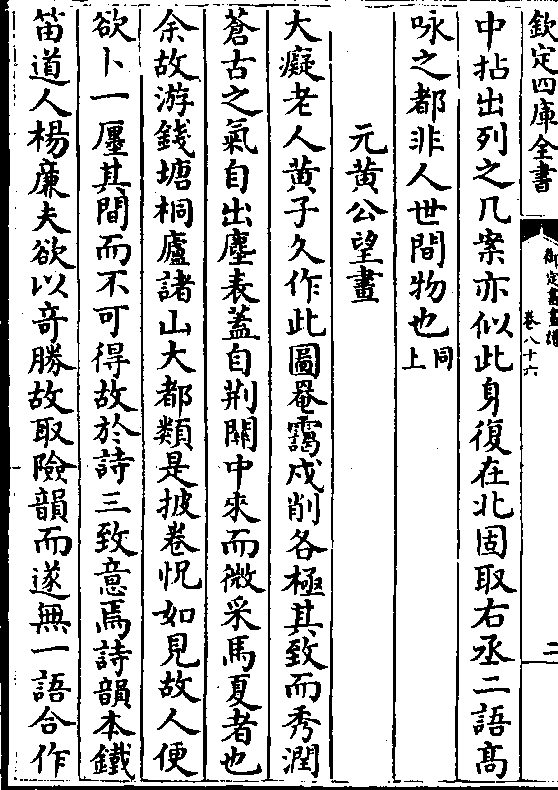 欽定四庫全書
御定書畫譜
卷八十六
二
中拈出列之几案亦似此身復在北固取右丞二語髙
咏之都非人世間物也同上
元黄公望畫
大癡老人黄子久作此圖罨靄戍削各極其致而秀潤
蒼古之氣自出塵表蓋自荆闗中來而微采馬夏者也
余故游錢塘桐廬諸山大都類是披卷怳如見故人便
欲卜一廛其間而不可得故於詩三致意焉詩韻本鐵
笛道人楊廉夫欲以竒勝故取險韻而遂無一語合作